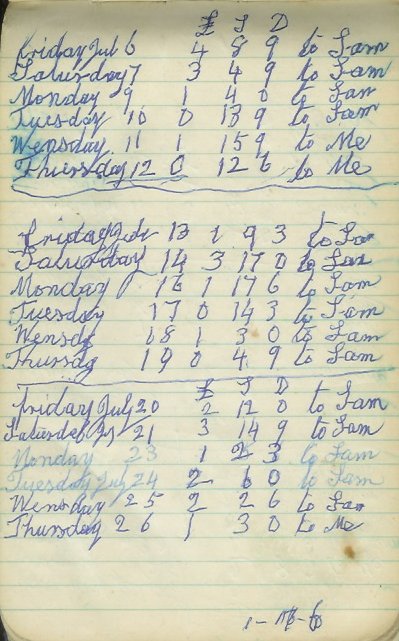 £ S D
Friday Jul 6 4 8 9 to Sam
Saturday 7 3 4 9 to Sam
Monday 9 1 4 0 to Sam
Tuesday 10 0 13 9 to Sam
Wensday 11 1 15 9 to Me
Thursday 12 0 12 6 to Me
Friday 13 1 9 3 to Sam
Saturday 14 3 17 0 to Sam
Monday 16 1 17 6 to Sam
Tuesday 17 0 14 3 to Sam
Wensd 18 1 3 0 to Sam
Thursday 19 0 4 9 to Sam
£ S D
Friday July 20 2 12 0 to Sam
Saturday 21 3 14 9 to Sam
Monday 23 1 2 3 to Sam
Tuesday July 24 2 6 0 to Sam
Wensday 25 2 2 6 to Sam
Thursday 26 1 3 0 to Me